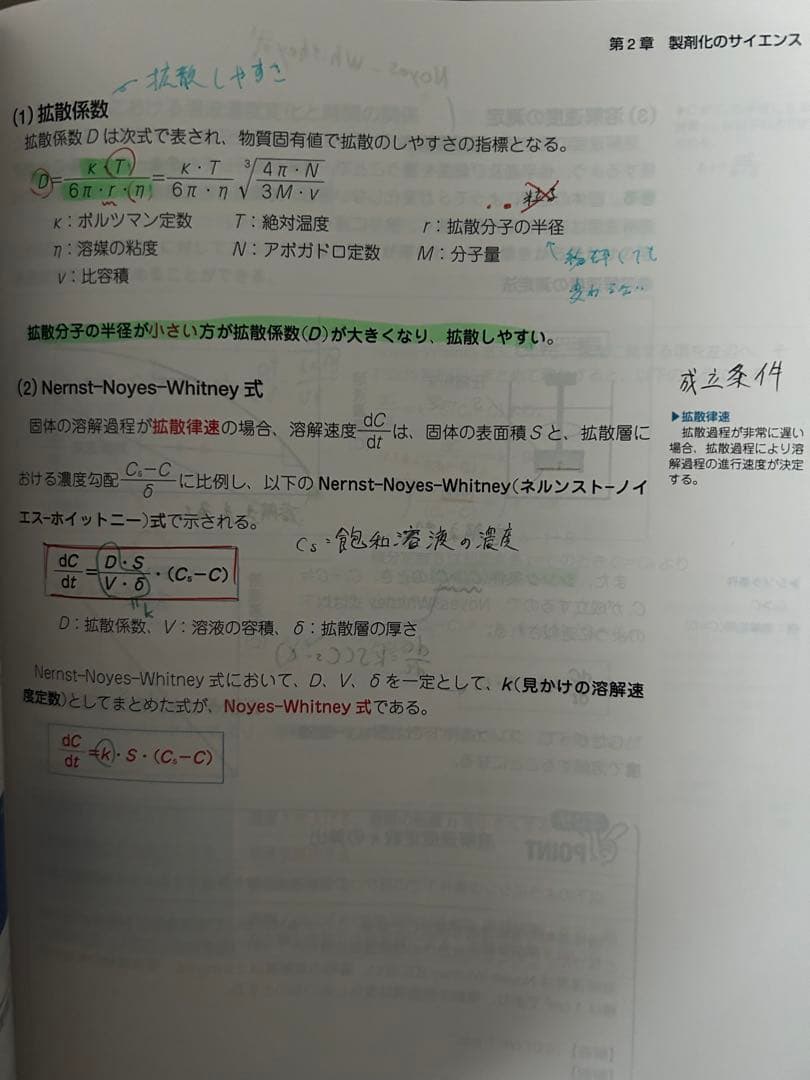 第2章 製剤化のサイエンス
拡散しやすさ
(1) 拡散係数
拡散係数 D は次式で表され、物質固有値で拡散のしやすさの指標となる。
D=κ・T/6π・r・η=κ・T/6π・η ∛4π・N/3M・v
κ：ボルツマン定数 T：絶対温度 r：拡散分子の半径
η：溶媒の粘度 N：アボガドロ定数 M：分子量
v：比容積
粉砕しても
変わらない
拡散分子の半径が小さい方が拡散係数(D)が大きくなり、拡散しやすい。
(2) Nernst-Noyes-Whitney 式
成立条件
固体の溶解過程が拡散律速の場合、溶解速度dC/dtは、固体の表面積 S と、拡散層に
おける濃度勾配Cs−C/δに比例し、以下の Nernst-Noyes-Whitney(ネルンスト-ノイ
エス-ホイットニー)式で示される。
▶拡散律速
拡散過程が非常に遅い
場合、拡散過程により溶
解過程の進行速度が決定
する。
Cs：飽和溶液の濃度
dC/dt=D・S/V・δ・(Cs−C)
k
D：拡散係数、V：溶液の容積、δ：拡散層の厚さ
Nernst-Noyes-Whitney 式において、D、V、δ を一定として、k(見かけの溶解速
度定数)としてまとめた式が、Noyes-Whitney 式である。
dC/dt=k・S・(Cs−C)